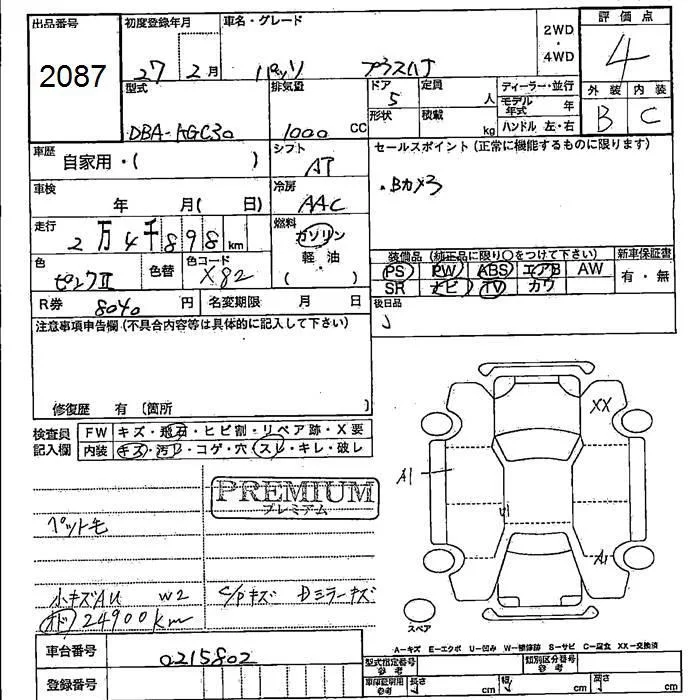 出品番号 初度登録年月 車名・グレード 2WD・4WD 評価点
2087 27年 2月 パッソ プラスハナ 4
型式 排気量 ドア 定員 ディーラー・並行 外装 内装
DBA-KGC30 1000 CC 5 人 モデル年式 年 B C
形状 積載 kg ハンドル 左・右
車歴 自家用・( ) シフト AT セールスポイント(正常に機能するものに限ります)
車検 年 月( 日) 冷房 AAC ・Bカメラ
走行 2万4千898km 燃料 ガソリン・軽油 ( )
装備品(純正品に限り○をつけて下さい) 新車保証書
PS PW ABS エアB AW 有・無
SR ナビ TV カワ
色 ピンクⅡ 色替 色コード X82
後日品
R券 8040円 名変期限 月 日
注意事項申告欄(不具合内容等は具体的に記入して下さい)
修復歴 有 (箇所 )
検査員記入欄 FW キズ・飛石・ヒビ割・リペア跡・X要
内装 キズ・汚レ・コゲ・穴・スレ・キレ・破レ
PREMIUM
プレミアム
XX
A1
U1
A1
ペット毛
小キズAU W2 C/Pキズ Dミラーキズ
オド 24900km
スペア
車台番号 0215802
A-キズ E-エクボ U-凹み W-補修跡 S-サビ C-腐食 XX-交換済
型式指定番号 参考 類別区分番号 参考
登録番号 車庫証明用 参考 長さ cm 幅 cm 高さ cm